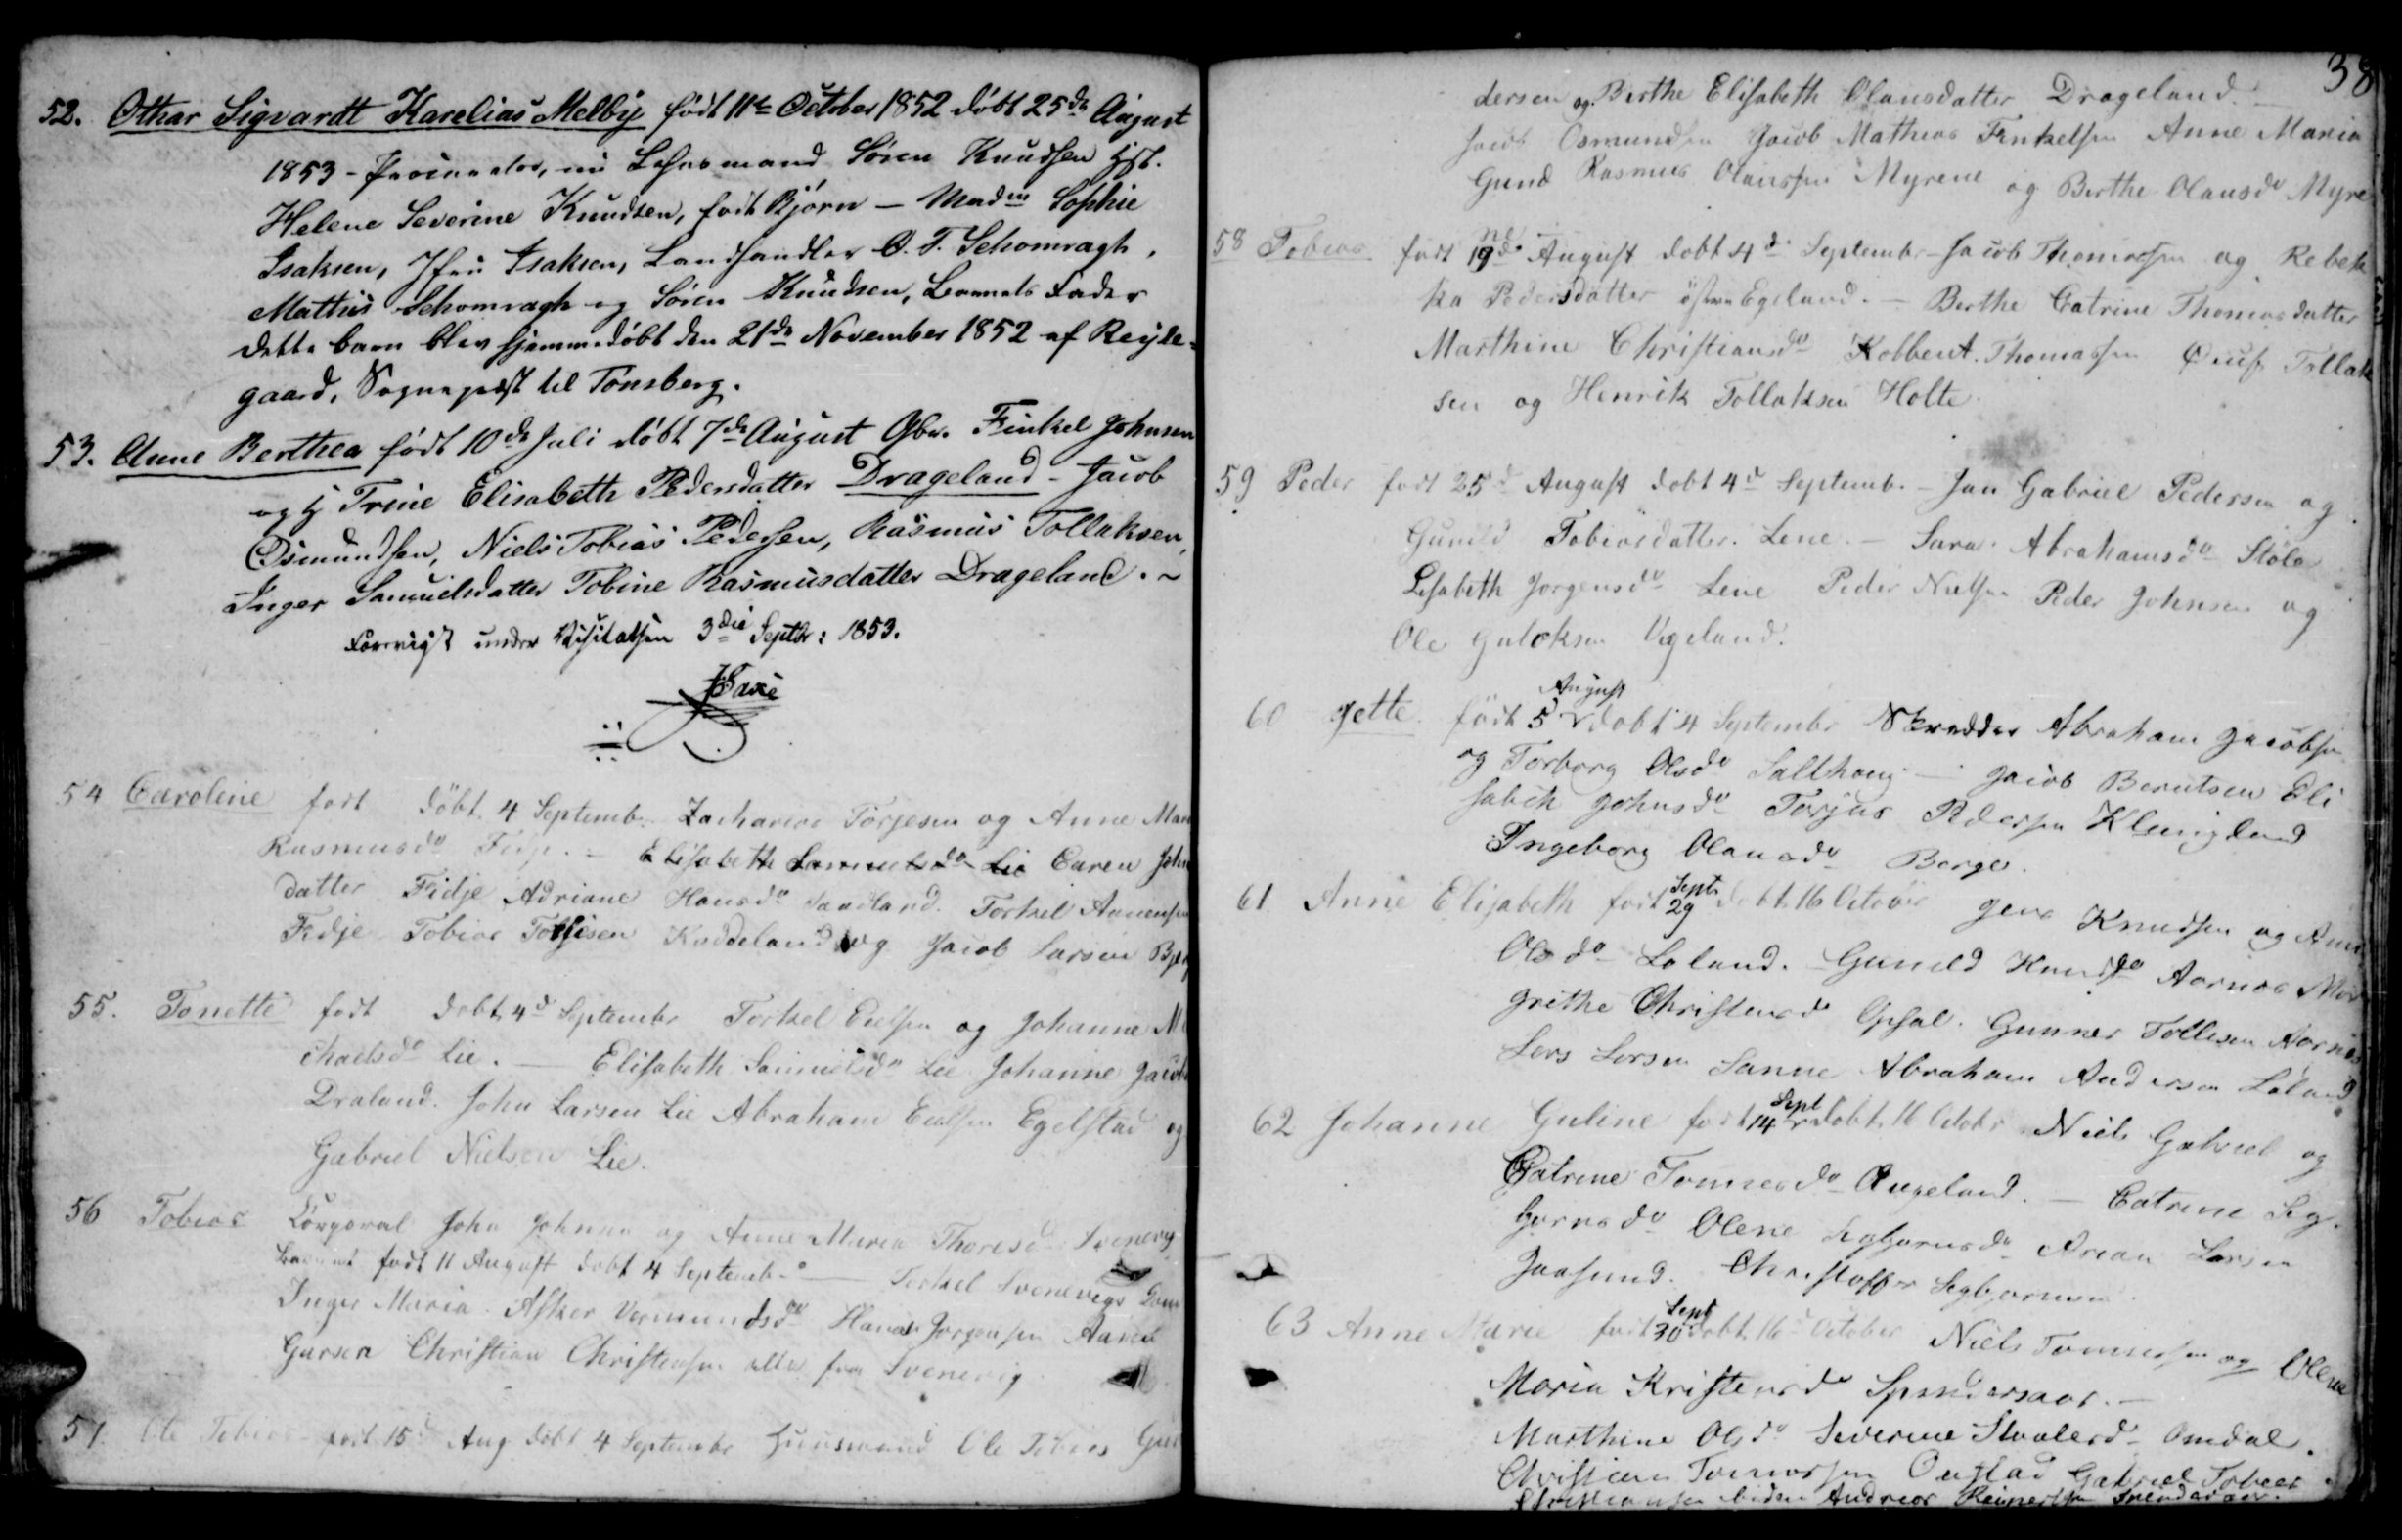 52. Othar Sigvardt Karelias Melbye født 11te October 1852 døbt 25de August
1853 - Procurator, nu Lehnsmand Søren Knudsen Hst.
Helene Severine Knudsen, født Bjørn - Madm Sophie
Isaksen, Jfru Isaksen, Landhandler O. T. Schomragh,
Mathis Schomragh og Søren Knudsen, Barnets Fader
dette barn blev hjemmedøbt den 21de November 1852 af Rejle-
gaard, Sognepræst til Tønsberg.
53. Anne Berthea født 10de Juli døbt 7de August Gbr. Finkel Johnsen
og H Trine Elisabeth Pedersdatter Drageland - Jacob
Osmundsen, Niels Tobias Pedersen, Rasmus Tollaksen,
Inger Samuelsdatter Tobine Rasmusdatter Drageland. -
Forevist under Visitatsen 3die Septbr: 1853.
54 Caroline født døbt 4 Septembr. Zacharias Torjesen og Anne Mar
Rasmusdr - Elisabeth Samuelsdr Lie Caren John
datter Fidje Adriane Hansdr Torkel Aanensen
Fidje Tobias Torjisen Koddeland og Jacob Larsen
55. Tonette født døbt 4d Septembr Torkel Eielsen og Johanne M
chaelsdr Lie. - Elisabeth Samuelsdr Lie Johanne Jacobs
Draland. John Larsen Lie Abraham Eielsen Egelstad og
Gabriel Nielsen Lie.
56 Tobias John Johnsen og Anne Maria Thoresdr Svenevig
Barnet født 11 August døbt 4 Septembr - Torkel Svenevigs
Inger Maria Asker Vermundsdr Hans Jørgensen
Christian Christensen alle fra Svenevig
57. Ole Tobias født 15d Aug døbt 4 Septembr Huusmand Ole Tobias Gun
38
dersen og Berthe Elisabeth Olausdatter Drageland. -
Jacob Osmundsen Jacob Mathias Finkelsen Anne Maria
Gund Rasmus Olaussen Myrene og Berthe Olausdr Myre
ne -
58 Tobias født 19de August døbt 4d Septembr - Jacob Thomassen og Rebek
ka Pedersdatter østre Egeland. - Berthe Catrine Thomasdatter
Marthine Christiansdr Kobbent. Thomassen Tollak
sen og Henrik Tollaksen Holte.
59 Peder født 25d August døbt 4d Septembr. - Jan Gabriel Pedersen og
Gunild Tobiasdatter Lene. - Sara Abrahamsdr Støle
Lisabeth Jorgensdr Lene Peder Nielsen Peder Johnsen og
Ole Gulaksen Vigeland.
60 Jette født 5 August døbt 4 Septembr Skrædder Abraham Jacobsen
og Torborg Olsdr Salthaug - Jacob Berntsen Eli
sabeth Johnsdr Torjus Pedersen Klungland
Ingeborg Olausdr Berge.
61 Anne Elisabeth født 29 Sept. døbt 16 October Jens Knudsen og Anne
Olsdr Loland. - Gunild Knudsdr Aarnes Mar
grethe Christensdr Opsal. Gunner Tollisen Aarnes
Lars Larsen Sanne Abraham Andersen Loland
62 Johanne Guline født 14 Sept døbt 16 Octobr Niels Gabriel og
Catrine Tonnesdr Augeland. - Catrine Sig
bjornsdr Olene Sigbjornsdr Arian Larsen
Jaasund. Christoffer Sigbjornsen.
63 Anne Marie født 30 Sept døbt 16d October Niels Tonnessen og Olene
Maria Kristensdr Spindersaas. -
Marthine Olsdr Severine Staalesdr Omdal.
Christian Tonnessen Gabriel Tobias
Christiansen Andreas Reinertsen